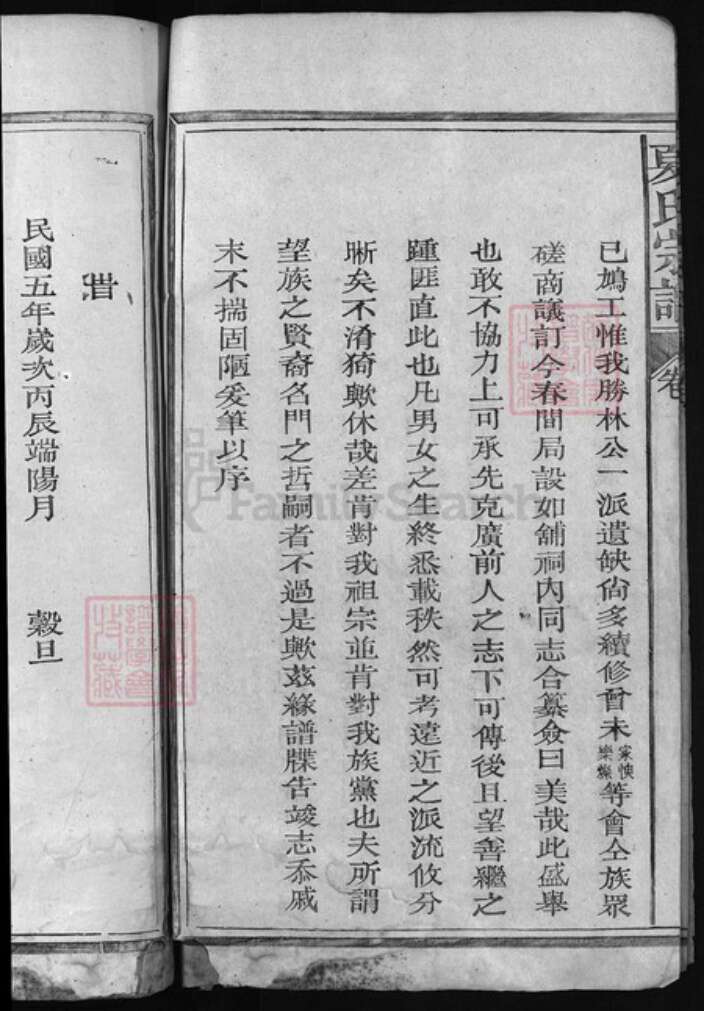 夏氏宗譜
卷
已鳩工惟我勝林公一派遺缺尙多續修曾未家懊樂燦等會仝族眾
磋商議訂今春間局設如舖祠內同志合纂僉曰美哉此盛舉
也敢不協力上可承先克廣前人之志下可傳後且望善繼之
踵匪直此也凡男女之生終悉載秩然可考遠近之派流攸分
晰矣不淆猗歟休哉差肯對我祖宗並肯對我族黨也夫所謂
望族之賢裔名門之哲嗣者不過是歟茲緣譜牒告竣志忝戚
末不揣固陋爰筆以序
旹
民國五年歲次丙辰端陽月 穀旦
FamilySearch